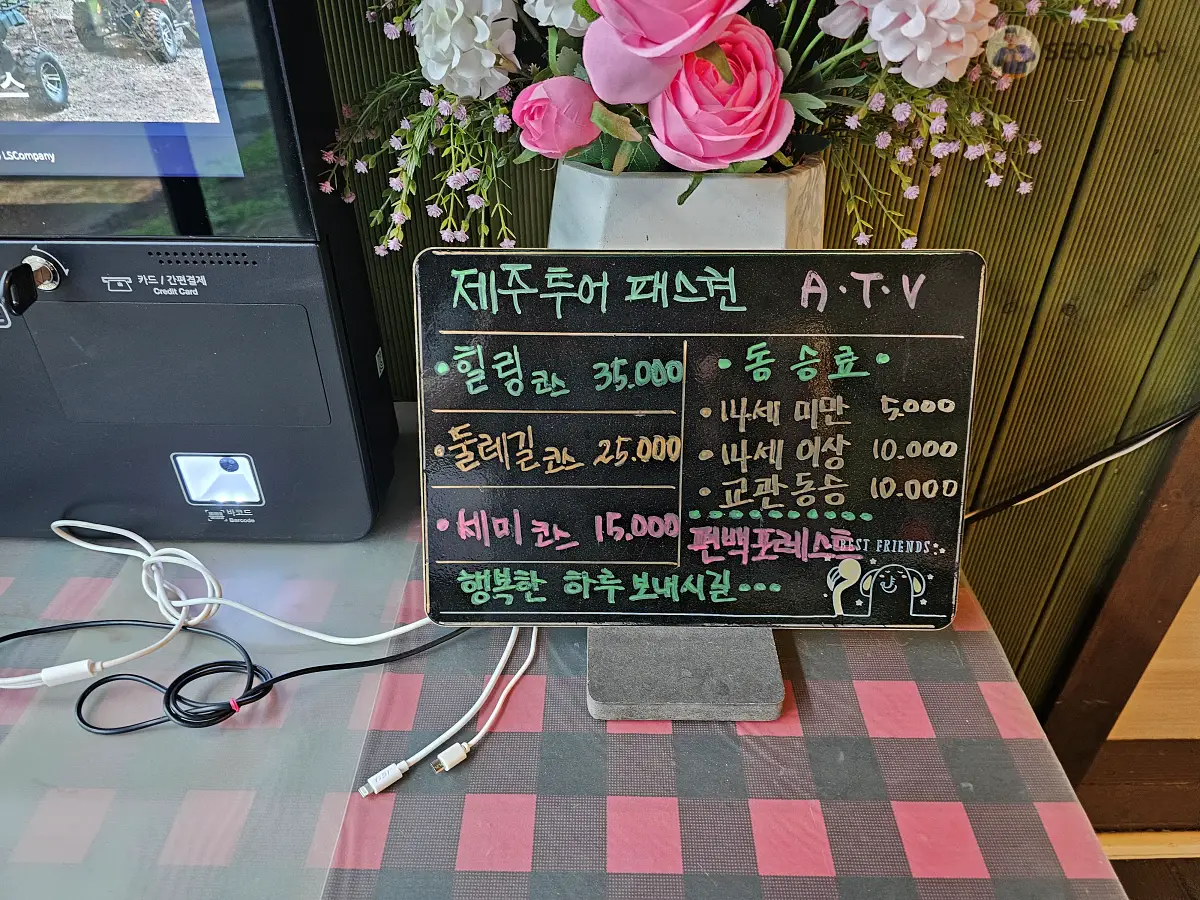 스
LSCompany
카드 / 간편결제
Credit Card
바코드
Barcode
제주투어 패스권 A·T·V
·힐링코스 35.000
·둘레길코스 25.000
·세미코스 15.000
·동승료·
·14세 미만 5.000
·14세 이상 10.000
·교관동승 10.000
편백포레스트
BEST FRIENDS
행복한 하루보내시길...